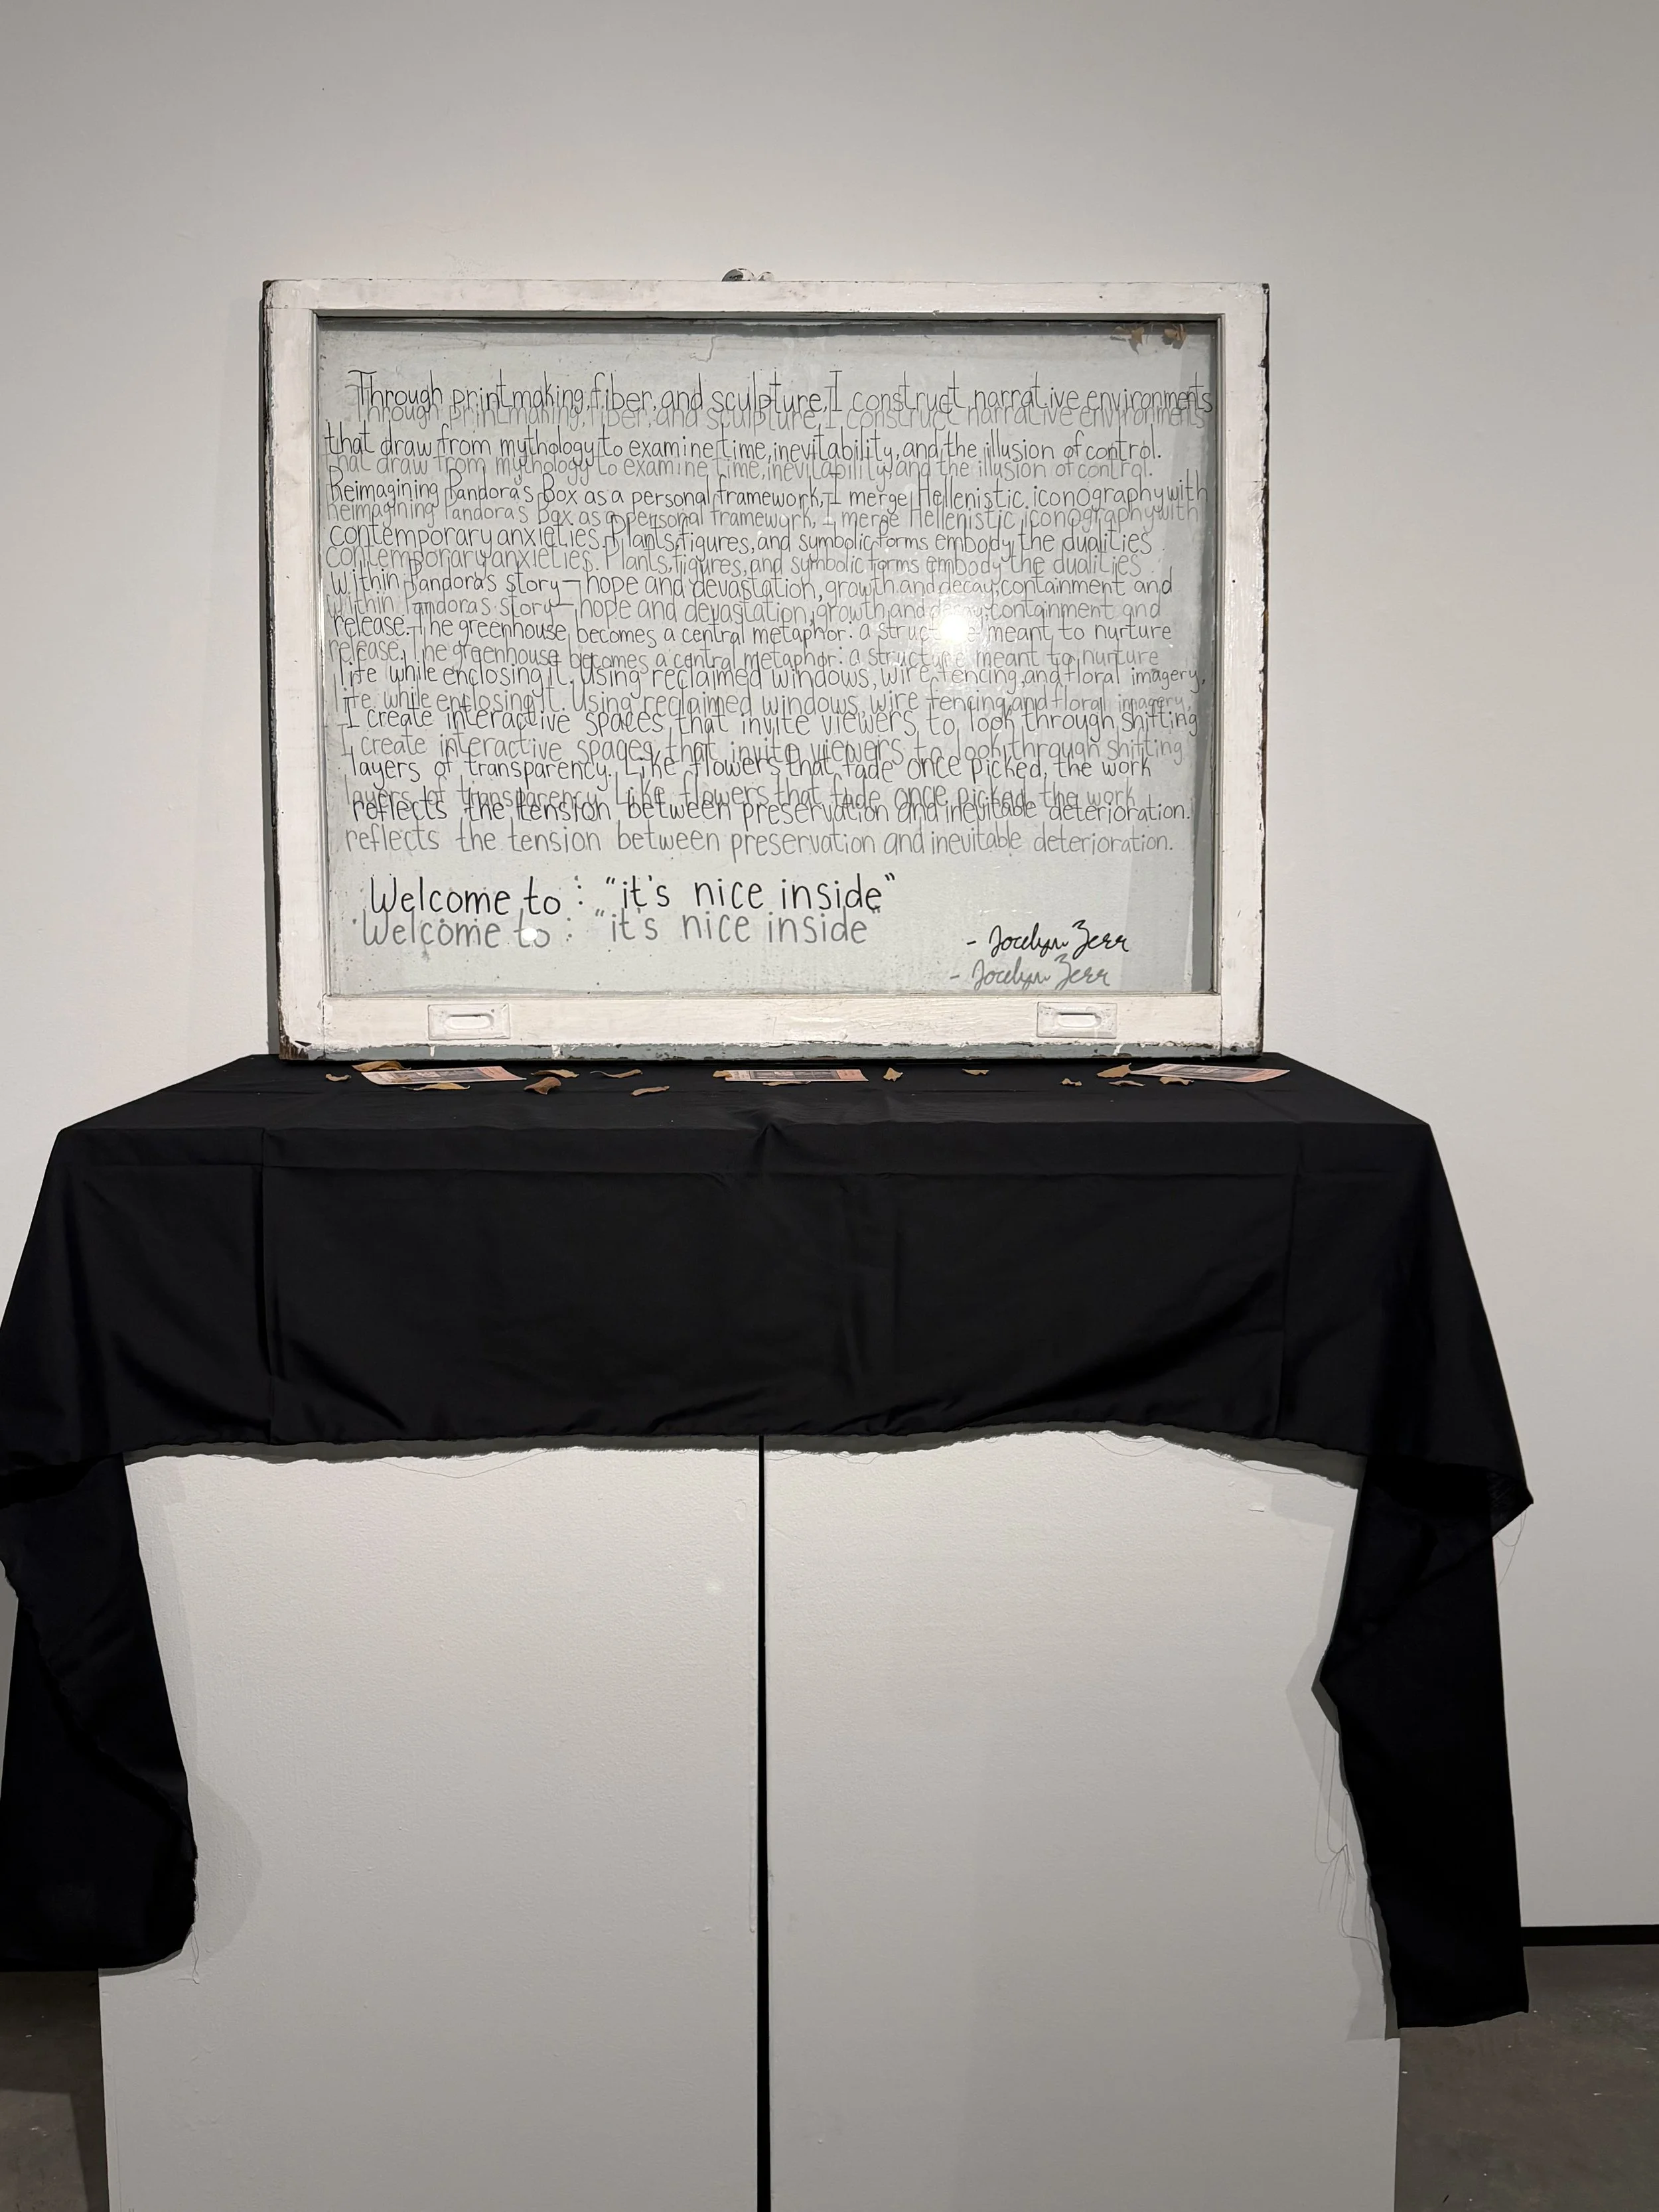 Through printmaking, fiber, and sculpture, I construct narrative environments
that draw from mythology to examine time, inevitability, and the illusion of control.
Reimagining Pandora's Box as a personal framework, I merge Hellenistic iconography with
contemporary anxieties. Plants, figures, and symbolic forms embody the dualities
within Pandora's story—hope and devastation, growth and decay, containment and
release. The greenhouse becomes a central metaphor: a structure meant to nurture
life while enclosing it. Using reclaimed windows, wire fencing, and floral imagery,
I create interactive spaces that invite viewers to look through shifting
layers of transparency. Like flowers that fade once picked, the work
reflects the tension between preservation and inevitable deterioration.
Welcome to : "it's nice inside"
- Jocelyn Zerr